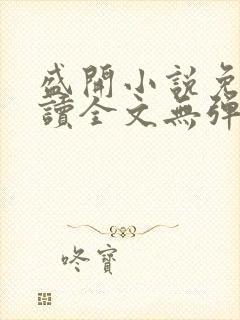 盛開小說免
讀全文無彈
咚寶